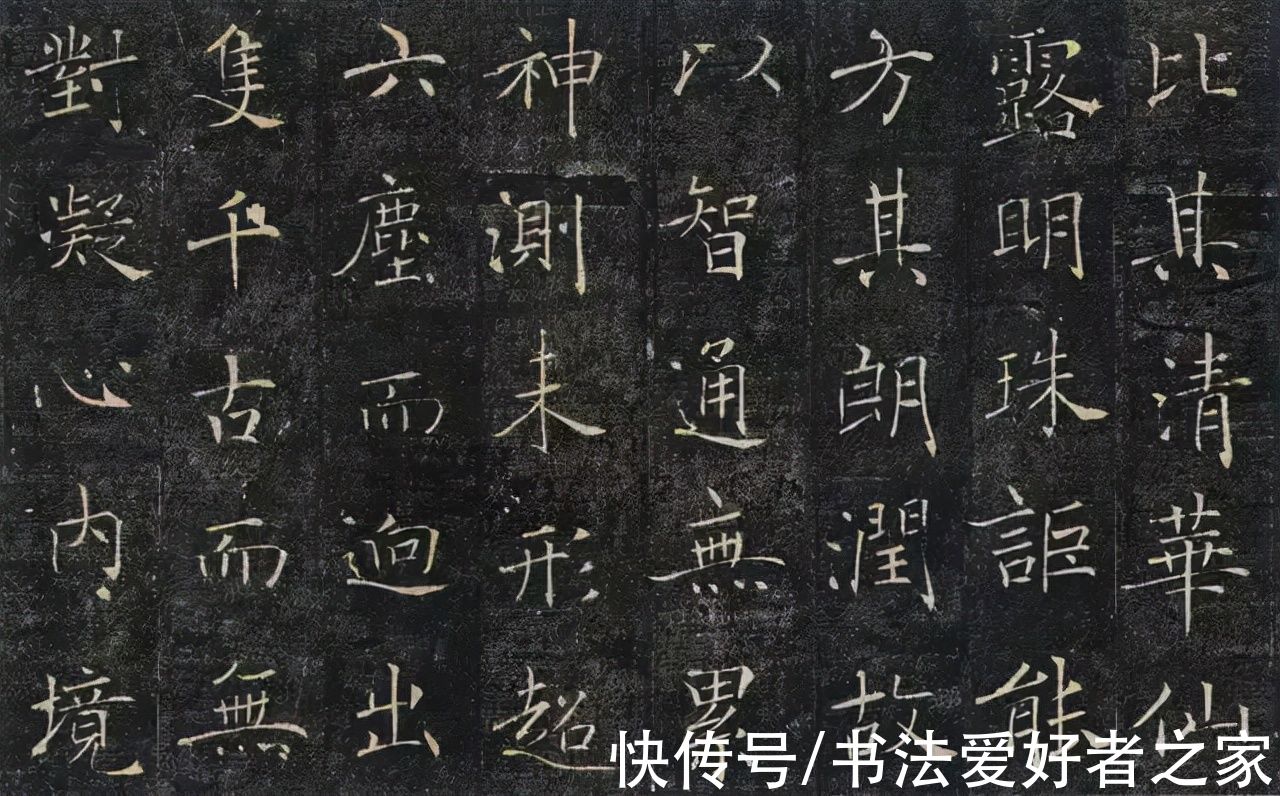 比其清華仙
露明珠詎能
方其朗潤故
以智通無累
神測未形超
六塵而迥出
隻千古而無
對凝心內境
快传号/书法爱好者之家